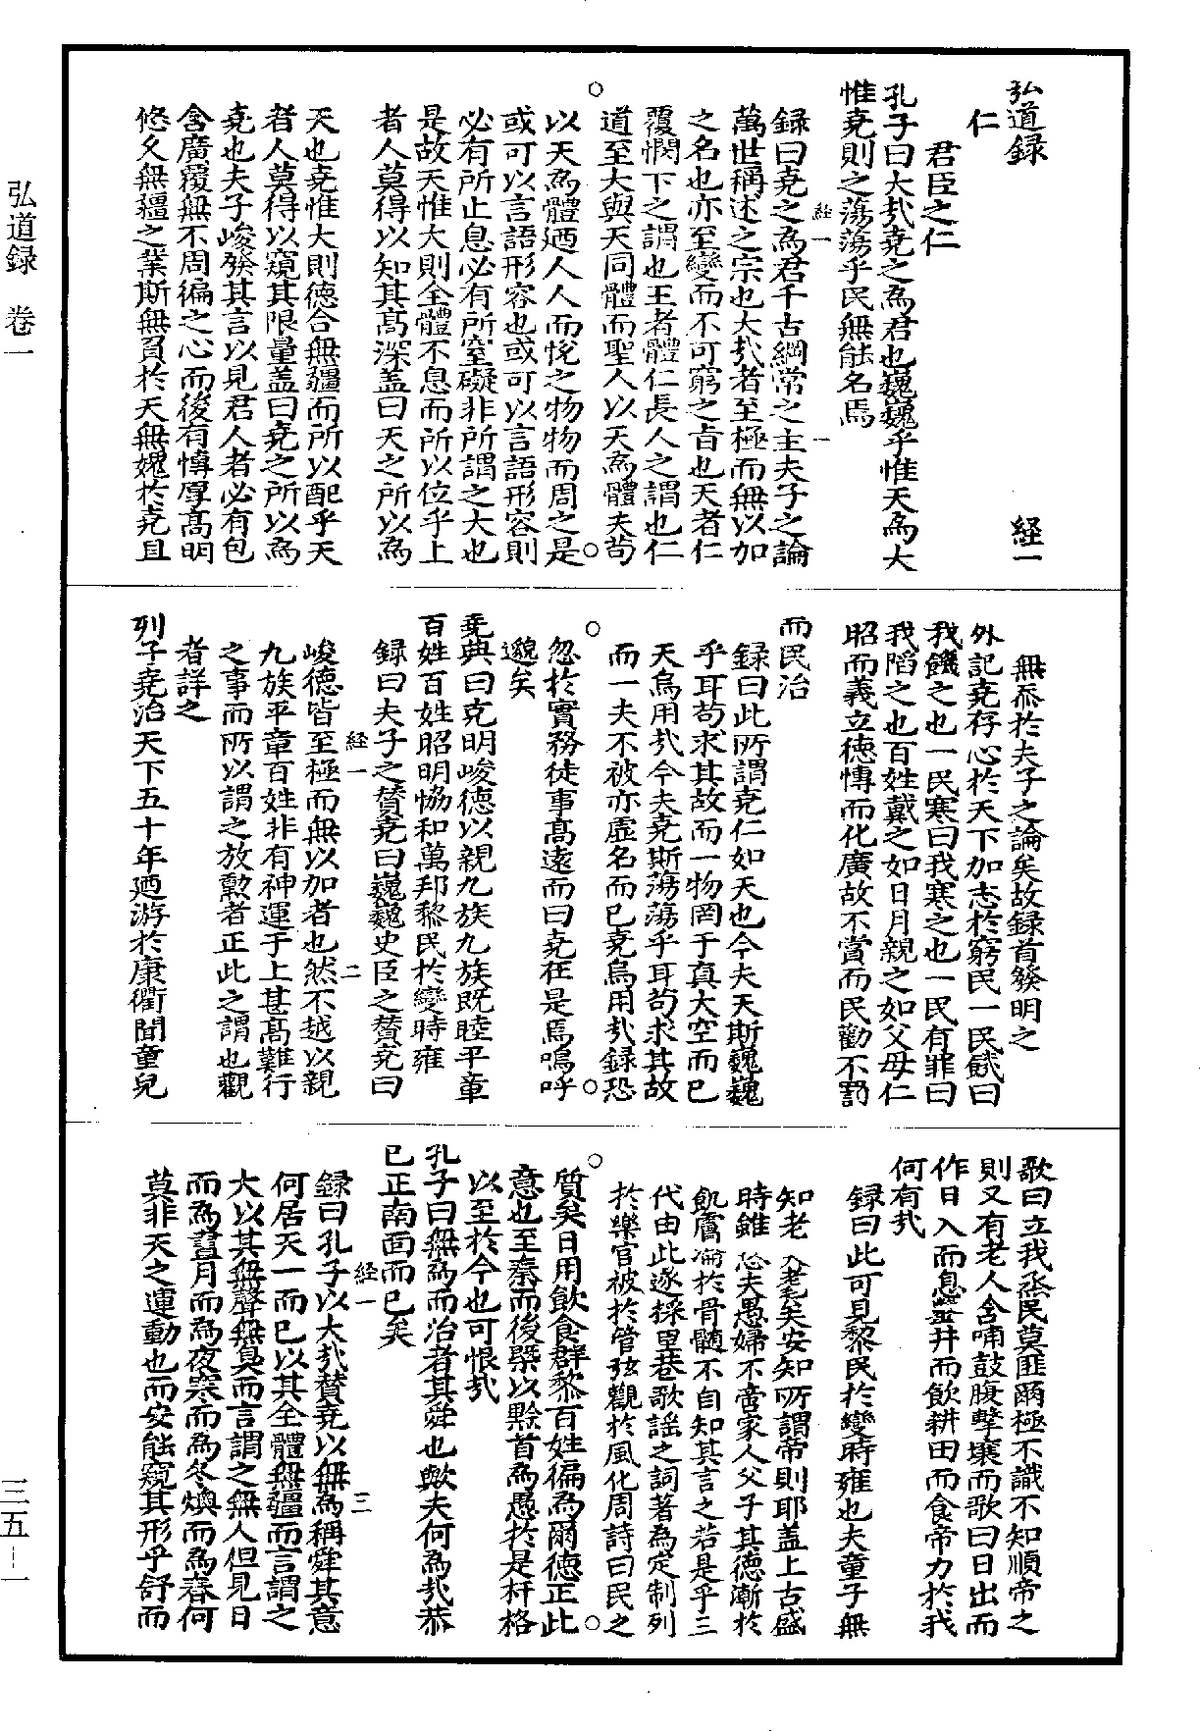 弘道録　　　経一
仁
君臣之仁
孔子曰大哉堯之為君也巍巍乎惟天為大
惟堯則之蕩蕩乎民無能名焉
経一　　一
録曰堯之為君千古綱常之主夫子之論
萬世稱述之宗也大哉者至極而無以加
之名也亦至變而不可窮之旨也天者仁
覆憫下之謂也王者體仁長人之謂也仁
道至大與天同體而聖人以天為體夫苟
以天為體廼人人而悅之物物而周之是
或可以言語形容也或可以言語形容則
必有所止息必有所窒礙非所謂之大也
是故天惟大則全體不息而所以位乎上
者人莫得以知其高深盖曰天之所以為
天也堯惟大則德合無疆而所以配乎天
者人莫得以窺其限量盖曰堯之所以為
堯也夫子峻發其言以見君人者必有包
含廣覆無不周徧之心而後有慱厚高明
悠久無疆之業斯無負於天無媿於堯且
無忝於夫子之論矣故録首發明之
外記堯存心於天下加志於窮民一民餓曰
我饑之也一民寒曰我寒之也一民有罪曰
我陷之也百姓戴之如日月親之如父母仁
昭而義立德慱而化廣故不賞而民勸不罰
而民治
録曰此所謂堯仁如天也今夫天斯巍巍
乎耳苟求其故而一物罔于真大空而已
天烏用哉今夫堯斯蕩蕩乎耳苟求其故
而一夫不被亦虛名而已堯烏用哉録恐
忽於實務徒事高遠而曰堯在是焉嗚呼
邈矣
堯典曰克明峻德以親九族九族既睦平章
百姓百姓昭明恊和萬邦黎民於變時雍
録曰夫子之賛堯曰巍巍史臣之賛堯曰
経一　　二
峻德皆至極而無以加者也然不越以親
九族平章百姓非有神運于上甚高難行
之事而所以謂之放勲者正此之謂也觀
者詳之
列子堯治天下五十年廼游於康衢聞童兒
歌曰立我烝民莫匪爾極不識不知順帝之
則又有老人含哺鼓腹擊壤而歌曰日出而
作日入而息鑿井而飲耕田而食帝力於我
何有哉
録曰此可見黎民於變時雍也夫童子無
知老人耄矣安知所謂帝則耶盖上古盛
時雖愚夫愚婦不啻家人父子其德漸於
肌膚淪於骨髓不自知其言之若是乎三
代由此遂採里巷歌謠之詞著為定制列
於樂官被於管弦觀於風化周詩曰民之
質矣日用飲食群黎百姓徧為爾德正此
意也至秦而後槩以黔首為愚於是杆格
以至於今也可恨哉
孔子曰無為而治者其舜也歟夫何為哉恭
已正南面而已矣
経一　　三
録曰孔子以大哉賛堯以無為稱舜其意
何居天一而已以其全體無疆而言謂之
大以其無聲無臭而言謂之無人但見日
而為晝月而為夜寒而為冬燠而為春何
莫非天之運動也而安能窺其形乎舒而
弘道録　卷一
三五—一